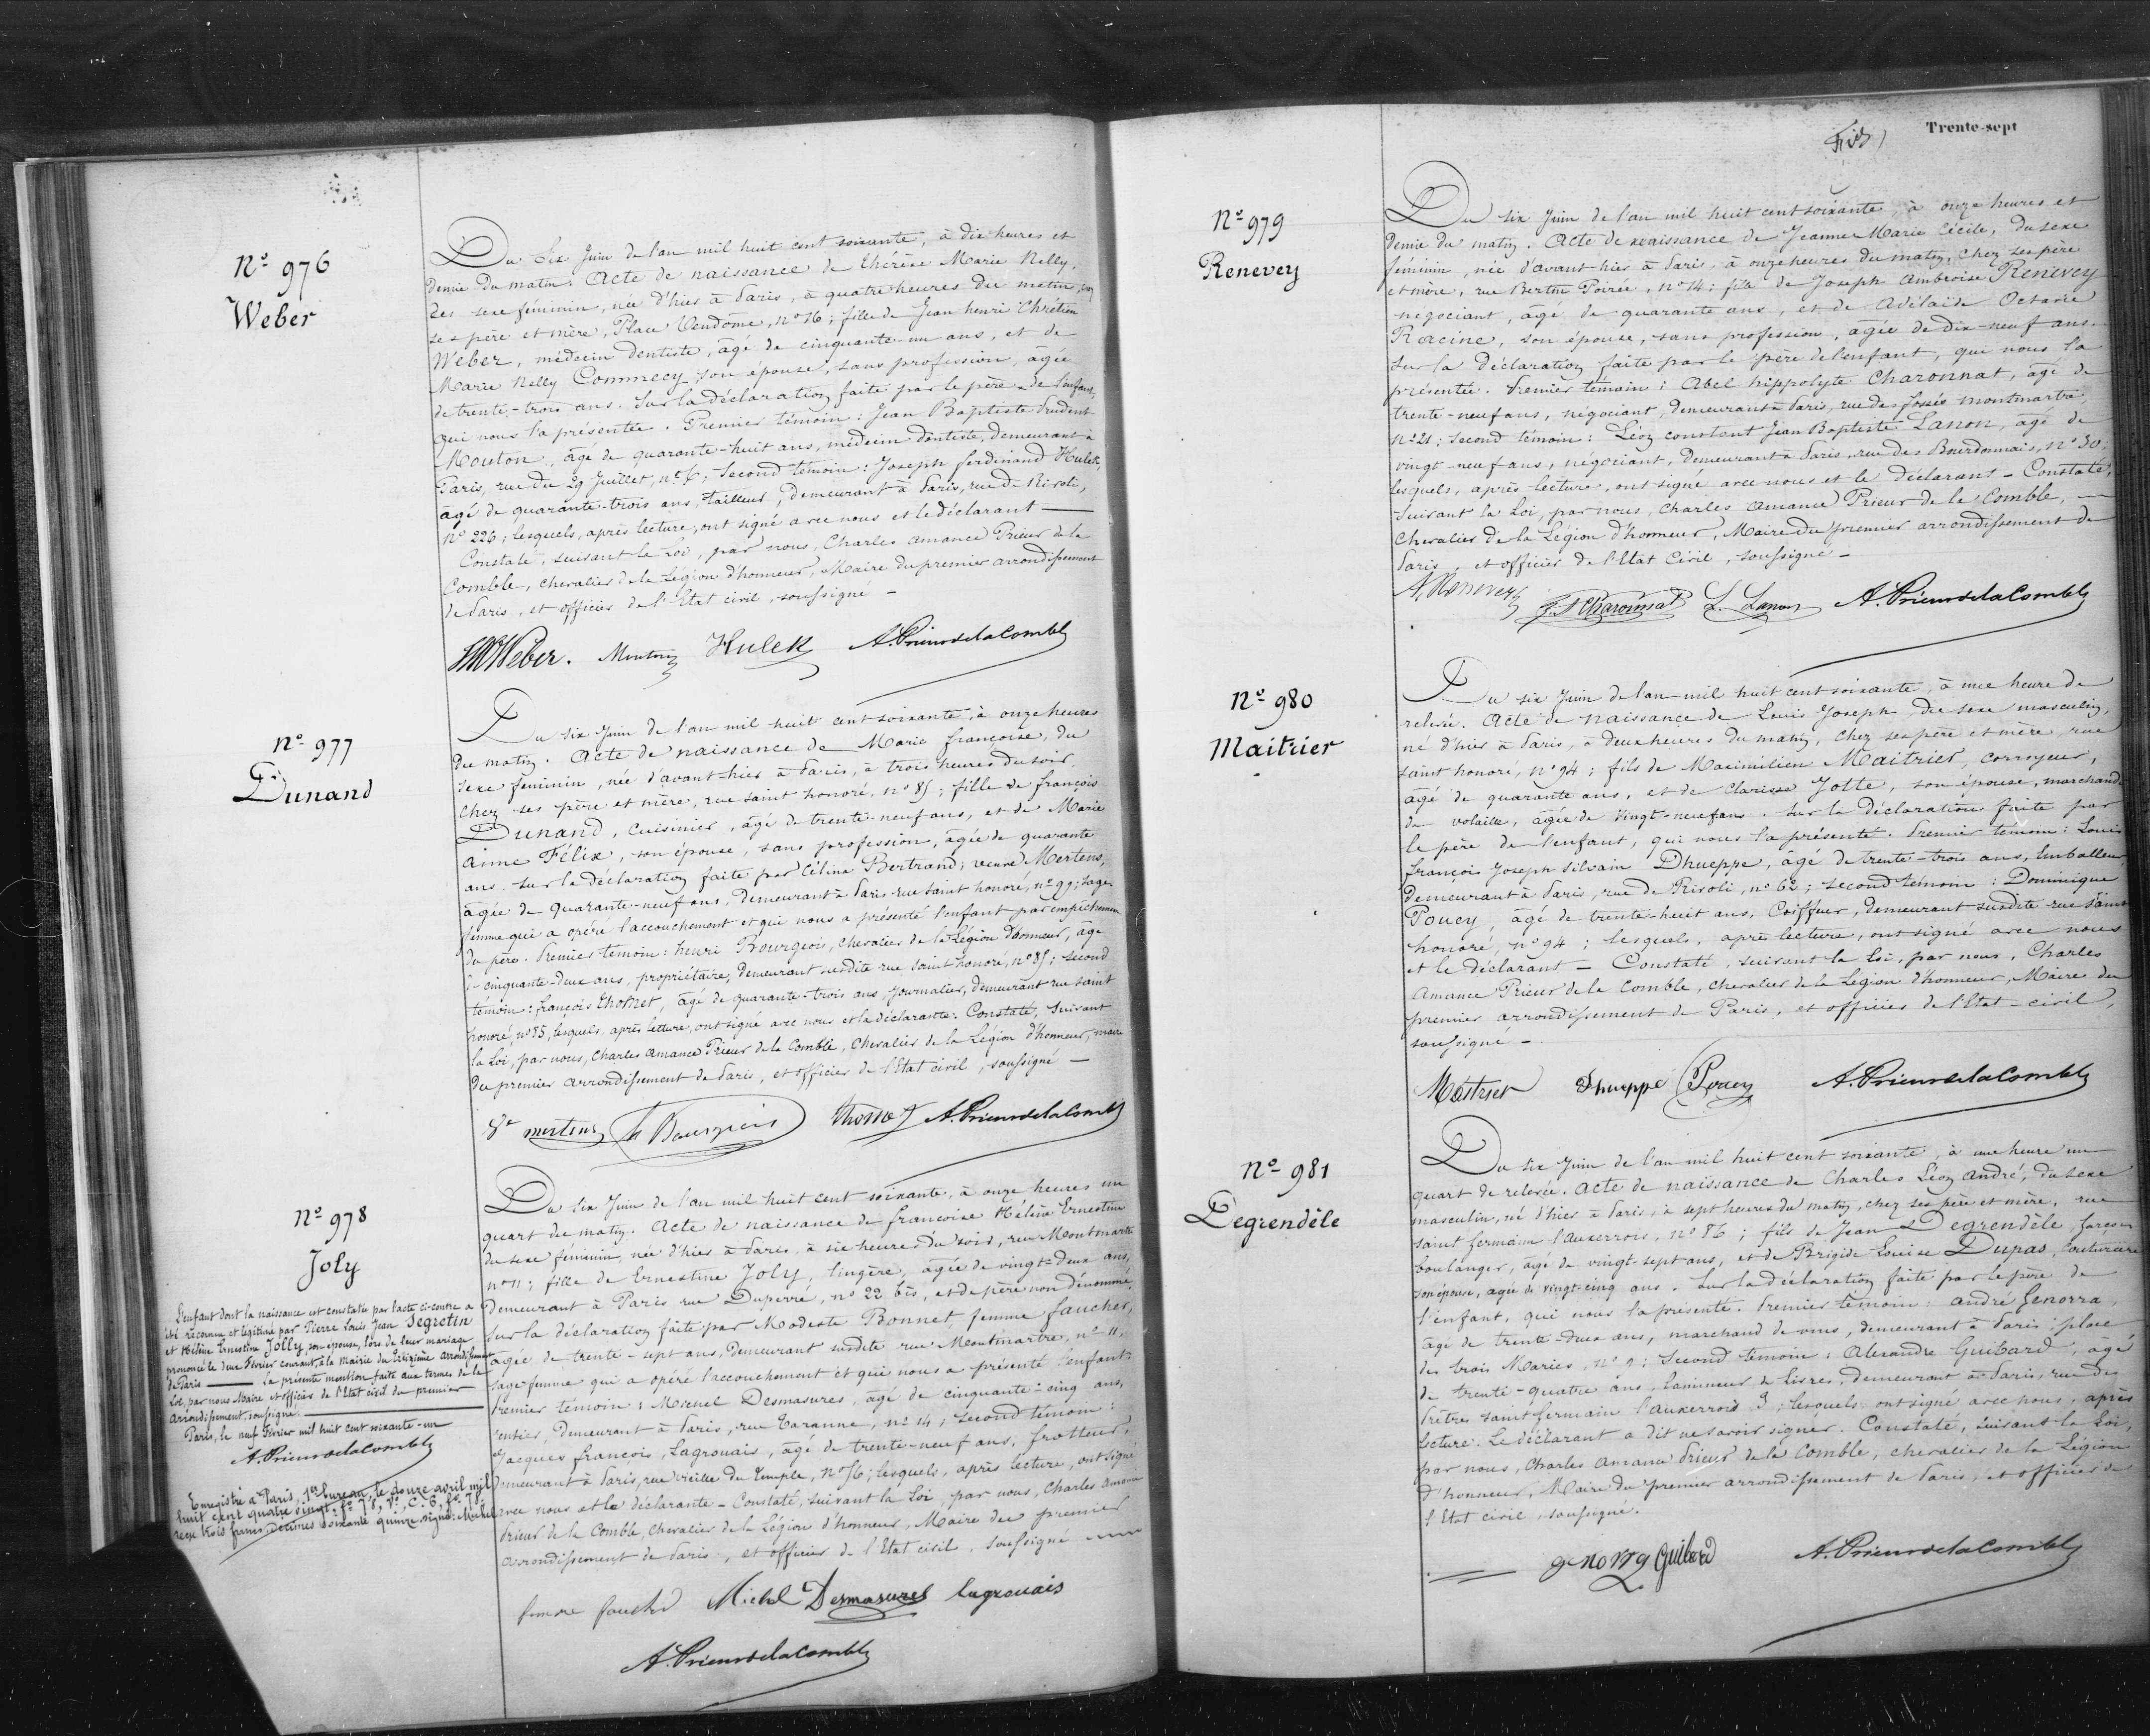 Nº 976
Weber
Du Six Juin de l'an mil huit cent soixante, à dix heures et
demie du matin. Acte de naissance de Thérèse Marie Nelly,
du sexe féminin, née d'hier à Paris, à quatre heures du matin, chez
ses père et mère, Place Vendôme, nº 16; fille de Jean henri Chrétien
Weber, médecin dentiste, âgé de cinquante-un ans, et de
Marie Nelly Commecy, son épouse, sans profession, âgée
de trente-trois ans. Sur la déclaration faite par le père de l'enfant,
qui nous l'a présentée. Premier témoin: Jean Baptiste Prudent
Mouton, âgé de quarante-huit ans, médecin dentiste, demeurant à
Paris, rue du 29 Juillet, nº 6; Second témoin: Joseph ferdinand Hulek,
âgé de quarante-trois ans, tailleur, demeurant à Paris, rue de Rivoli,
nº 226; lesquels, après lecture, ont signé avec nous et le déclarant —
Constaté, suivant la Loi, par nous, Charles amance Prieur de la
Comble, chevalier de la Légion d'honneur, Maire du premier arrondissement
de Paris, et officier de l'Etat civil, soussigné —
Weber. Mouton Hulek A. Prieur de la Comble
nº 977
Dunand
Du six Juin de l'an mil huit cent soixante, à onze heures
du matin. Acte de naissance de Marie françoise, du
sexe féminin, née d'avant-hier à Paris, à trois heures du soir,
chez ses père et mère, rue saint honoré, nº 85; fille de françois
Dunand, cuisinier, âgé de trente-neuf ans, et de Marie
anne Félix, son épouse, sans profession, âgée de quarante
ans. Sur la déclaration faite par Célina Bertrand, veuve Mertens,
âgée de quarante-neuf ans, demeurant à Paris rue saint honoré, nº 99; sage
femme qui a opéré l'accouchement et qui nous a présenté l'enfant par empêchement
du père. Premier témoin: henri Bourgeois, chevalier de la Légion d'honneur, âgé
de cinquante-deux ans, propriétaire, demeurant susdite rue saint honoré, nº 85; second
témoin: françois Thomet, âgé de quarante-trois ans, Journalier, demeurant rue saint
honoré, nº 85, lesquels, après lecture, ont signé avec nous et la déclarante. Constaté, suivant
la Loi, par nous, Charles amance Prieur de la Comble, chevalier de la Légion d'honneur, maire
du premier arrondissement de Paris, et officier de l'Etat civil, soussigné —
Ve mertens h Bourgeois Thomet A. Prieur de la Comble
Nº 978
Joly
L'enfant dont la naissance est constatée par l'acte ci-contre a
été reconnu et légitimé par Pierre Louis Jean Segretin
et Hélène Ernestine Jolly, son épouse, lors de leur mariage
prononcé le deux Février courant, à la Mairie du troisième arrondissement
de Paris — la présente mention faite aux termes de la
Loi, par nous Maire et officier de l'Etat civil du premier
arrondissement, soussigné.
Paris, le neuf Février mil huit cent soixante-un
A. Prieur de la Comble
Enregistré à Paris, 1er bureau, le douze avril mil
huit cent quatre vingt, fº 78, Vº, C. 6,
reçu trois francs décimes soixante quinze. signé: Michel
Du six Juin de l'an mil huit cent soixante, à onze heures un
quart du matin. Acte de naissance de francoise Hélène Ernestine
du sexe féminin, née d'hier à Paris, à six heures du soir, rue Montmartre
nº 11; fille de Ernestine Joly, lingère, âgée de vingt-deux ans,
demeurant à Paris rue Duperré, nº 22 bis, et de père non dénommé.
Sur la déclaration faite par Modeste Bonnet, femme faucher,
âgée de trente-sept ans, demeurant susdite rue Montmartre, nº 11,
sage femme qui a opéré l'accouchement et qui nous a présenté l'enfant.
Premier témoin: Michel Desmasures, âgé de cinquante-cinq ans,
rentier, demeurant à Paris, rue Taranne, nº 14; second témoin:
Jacques françois, Lagrouais, âgé de trente-neuf ans, frotteur,
demeurant à Paris, rue vieille du temple, nº 56; lesquels, après lecture, ont signé
avec nous et la déclarante — Constaté, suivant la Loi, par nous, Charles amance
Prieur de la Comble, chevalier de la Légion d'honneur, Maire du premier
arrondissement de Paris, et officier de l'Etat civil, soussigné
femme faucher Michel Desmasures lagrouais
A. Prieur de la Comble
Trente-sept
Nº 979
Renevey
Du six Juin de l'an mil huit cent soixante, à onze heures et
demie du matin. Acte de naissance de Jeanne Marie Cécile, du sexe
féminin, née d'avant-hier à Paris, à onze heures du matin, chez ses père
et mère, rue Bertin Poirée, nº 14; fille de Joseph Ambroise Renevey
négociant, âgé de quarante ans, et de Adélaïde Octavie
Racine, son épouse, sans profession, âgée de dix-neuf ans.
Sur la déclaration faite par le père de l'enfant, qui nous l'a
présentée. Premier témoin: Abel hippolyte Charonnat, âgé de
trente-neuf ans, négociant, demeurant à Paris, rue des fossés montmartre,
nº 21; second témoin: Léon constant Jean Baptiste Lanon, âgé de
vingt-neuf ans, négociant, demeurant à Paris, rue des Bourdonnais, nº 30;
lesquels, après lecture, ont signé avec nous et le déclarant — Constaté,
suivant la Loi, par nous, Charles amance Prieur de la Comble, —
Chevalier de la Légion d'honneur, Maire du premier arrondissement de
Paris, et officier de l'Etat Civil, soussigné —
A. Renevey Charonnat L. Lanon A. Prieur de la Comble
Nº 980
Maitrier
Du six Juin de l'an mil huit cent soixante, à une heure de
relevée. Acte de naissance de Louis Joseph, du sexe masculin,
né d'hier à Paris, à deux heures du matin, chez ses père et mère, rue
saint honoré, nº 94; fils de Maximilien Maitrier, corroyeur,
âgé de quarante ans, et de Clarisse Jotte, son épouse, marchande
de volaille, âgée de vingt-neuf ans. Sur la déclaration faite par
le père de l'enfant, qui nous l'a présenté. Premier témoin: Louis
françois Joseph Silvain Dhueppe, âgé de trente-trois ans, Emballeur,
demeurant à Paris, rue de Rivoli, nº 62; second témoin: Dominique
Poucy, âgé de trente-huit ans, Coiffeur, demeurant susdite rue saint
honoré, nº 94; lesquels, après lecture, ont signé avec nous
et le déclarant — Constaté, suivant la Loi, par nous, Charles
Amance Prieur de la Comble, chevalier de la Légion d'honneur, Maire du
premier arrondissement de Paris, et officier de l'Etat-civil,
soussigné —
Maitrier Dhueppe Poucy A. Prieur de la Comble
Nº 981
Degrendèle
Du six Juin de l'an mil huit cent soixante, à une heure un
quart de relevée. Acte de naissance de Charles Léon André, du sexe
masculin, né d'hier à Paris, à sept heures du matin, chez ses père et mère, rue
saint germain l'auxerrois, nº 86; fils de Jean Degrendèle, garçon
boulanger, âgé de vingt-sept ans, et de Brigide Louise Dupas, couturière
son épouse, âgée de vingt-cinq ans. Sur la déclaration faite par le père de
l'enfant, qui nous l'a présenté. Premier témoin: andré Genorza,
âgé de trente-deux ans, marchand de vins, demeurant à Paris, place
des trois Maries, nº 9; Second témoin: Alexandre Guibard, âgé
de trente-quatre ans, lamineur de Livres, demeurant à Paris, rue des
Prêtres saint Germain l'auxerrois 3; lesquels ont signé avec nous, après
lecture. Le déclarant a dit ne savoir signer. Constaté, suivant la Loi,
par nous, Charles Amance Prieur de la Comble, chevalier de la Légion
d'honneur, Maire du premier arrondissement de Paris, et officier de
l'Etat civil, soussigné.
genorza Guibard A. Prieur de la Comble